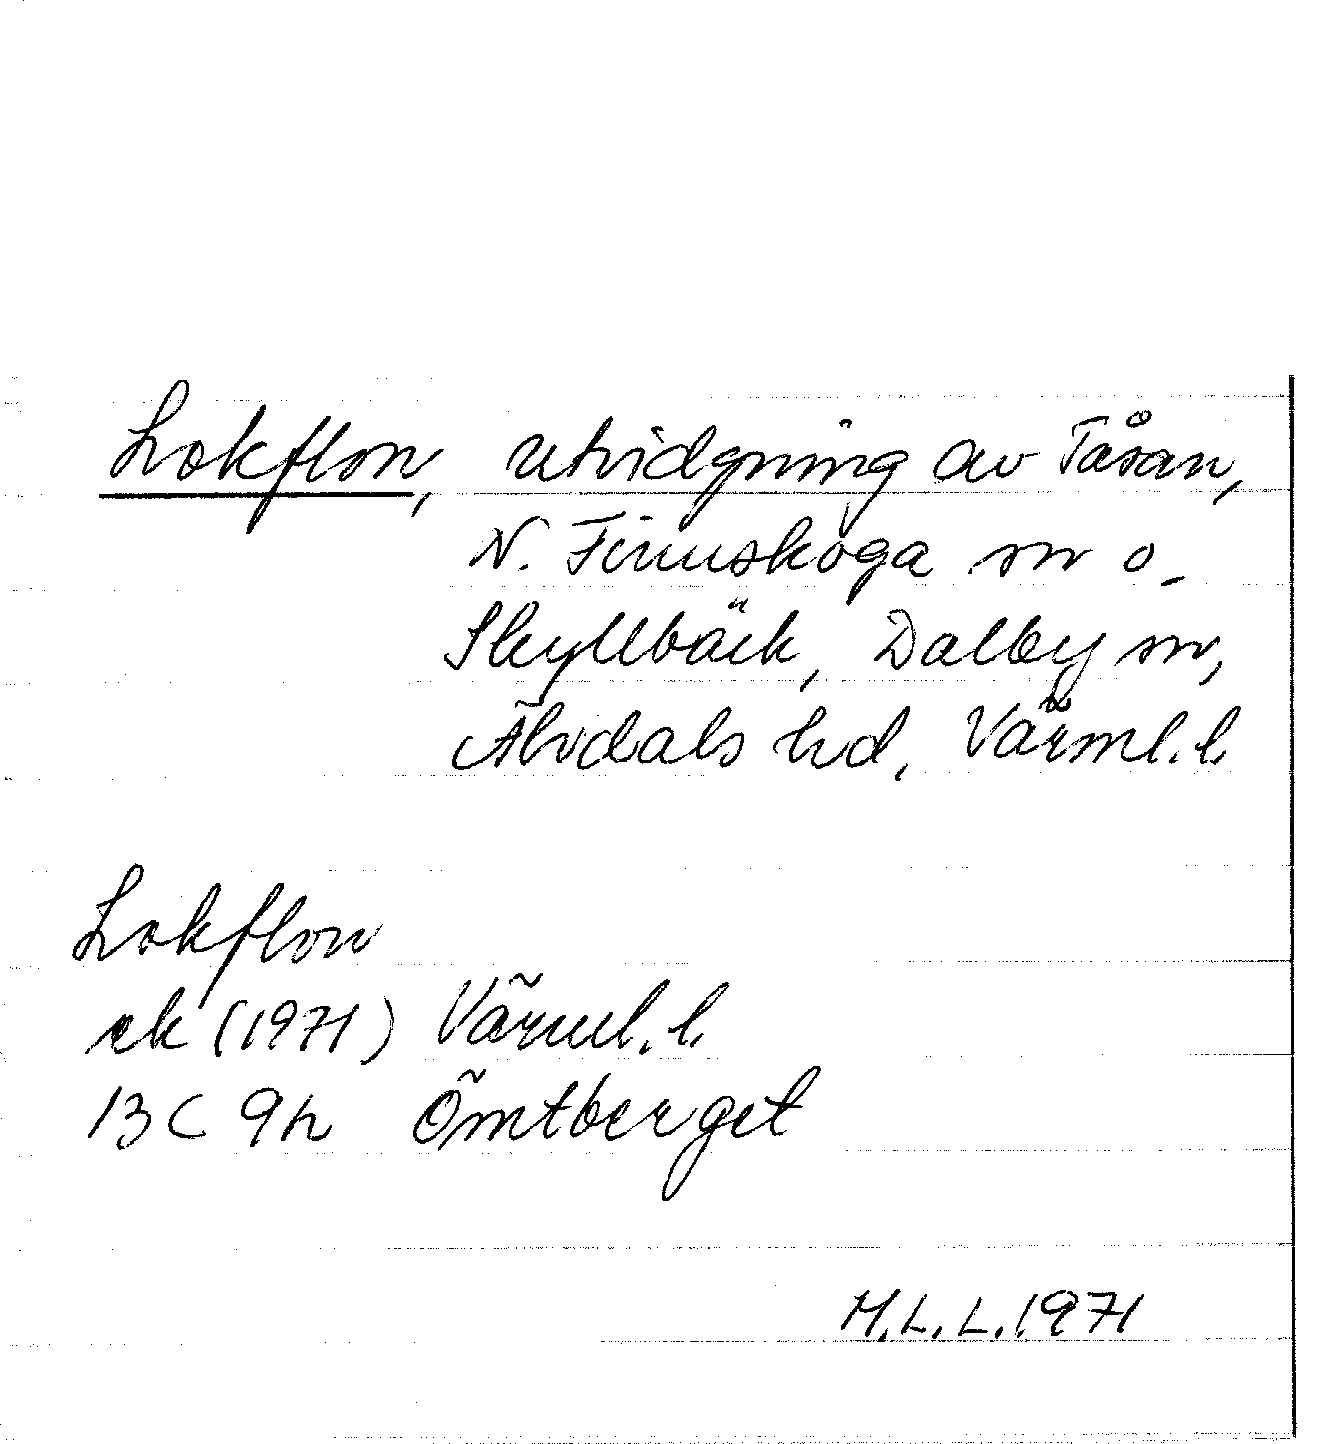 Lokflon, utvidgning av Tåsan,
N. Finnskoga sn o.
Skyllbäck, Dalby sn,
Älvdals hd, Värml. l.
Lokflon
ek (1971) Värml. l.
13 C 9h Ömtberget
M.L.L. 1971